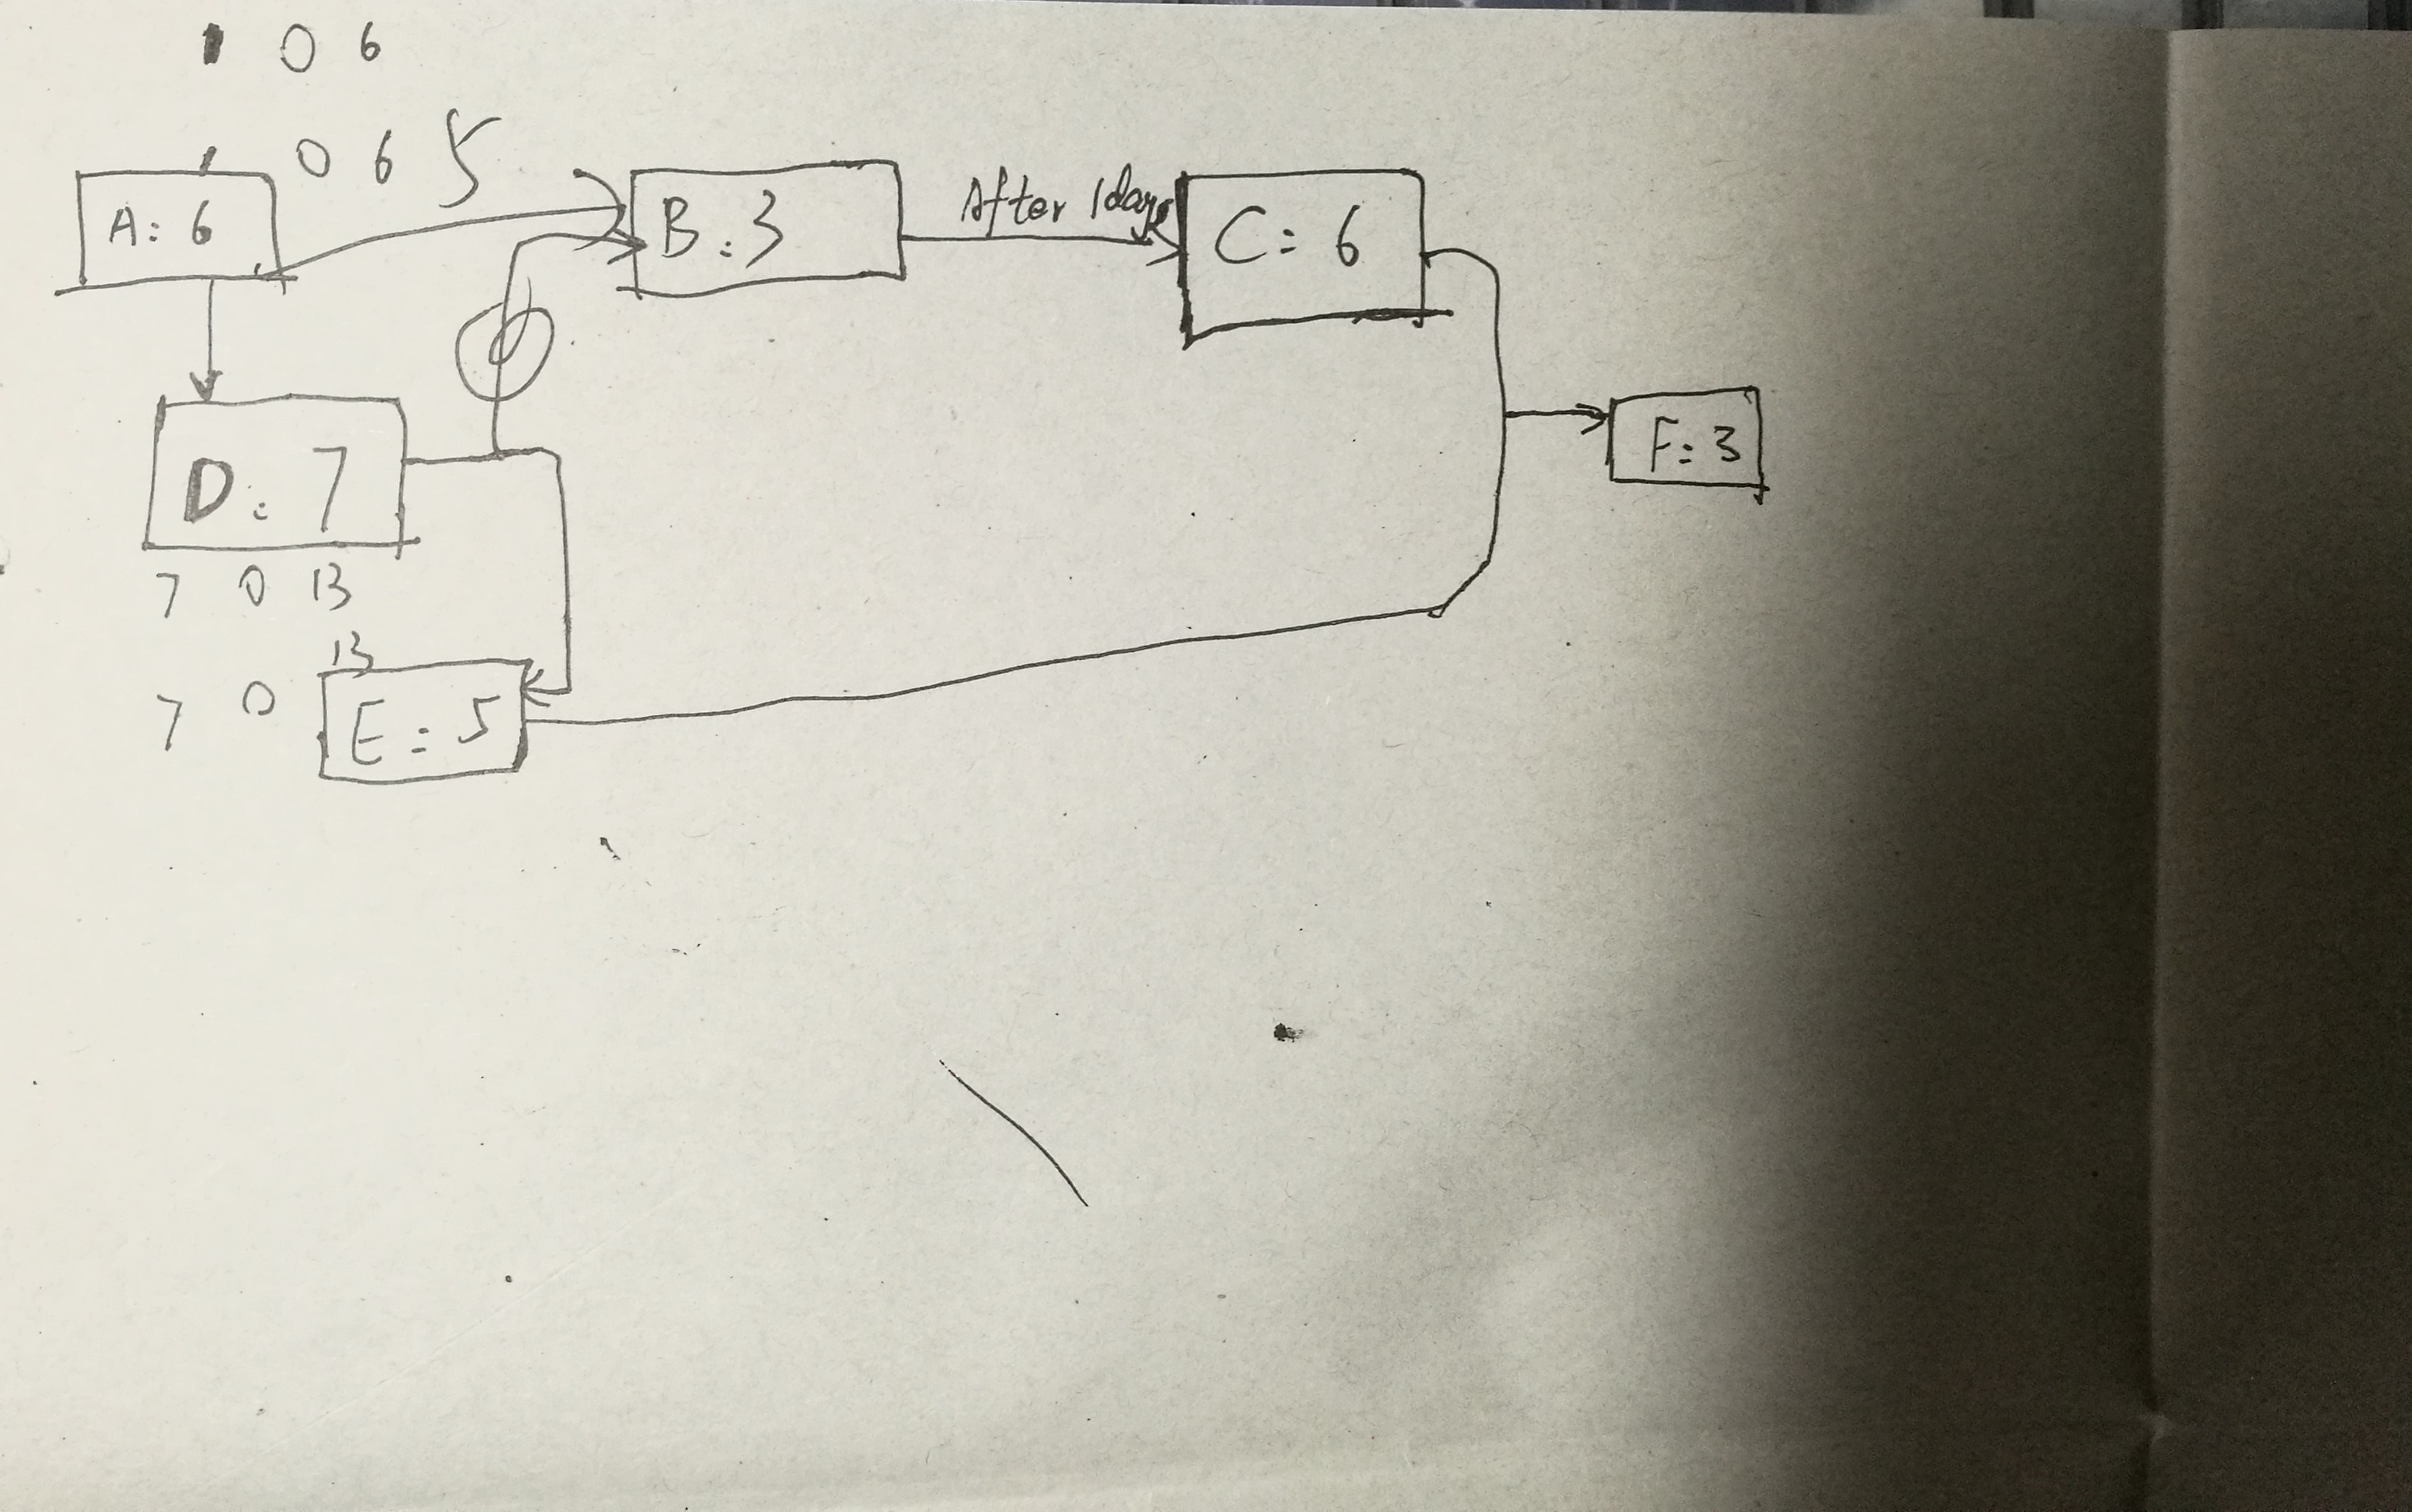 1 0 6
1 0 6 5
A: 6
B: 3
After 1days
C: 6
D: 7
F: 3
7 0 13
13
7 0
E: 5